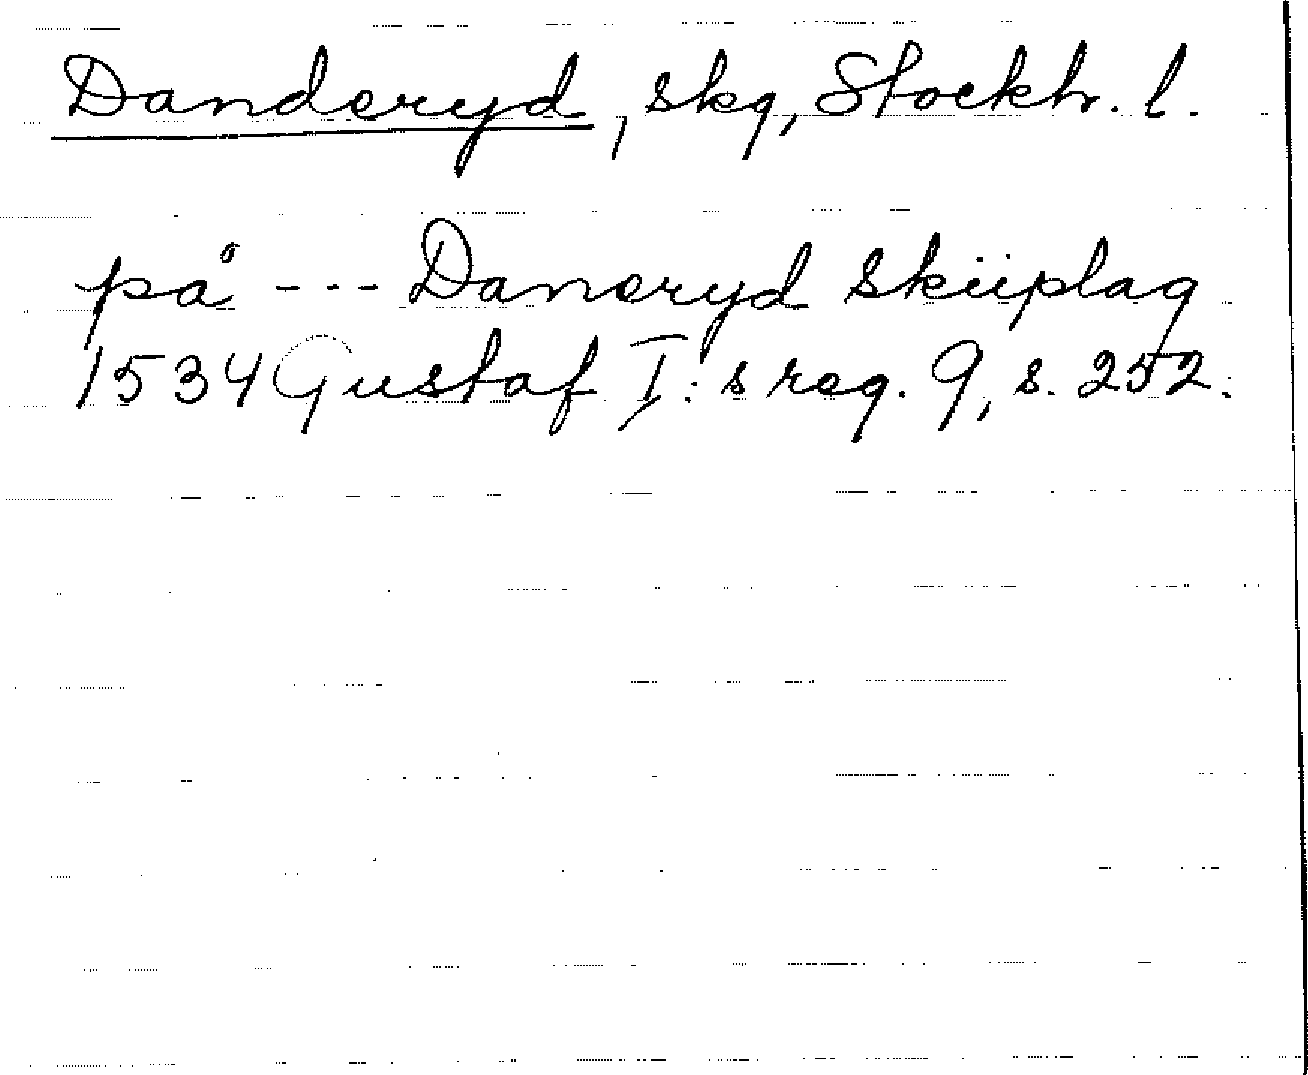 Danderyd, skg, Stockh. l.
på --- Daneryd Skiiplag
1534 Gustaf I:s reg. 9, s. 252.